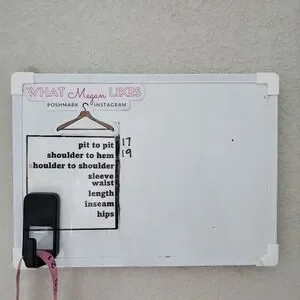 WHAT Megan LIKES
POSHMARK INSTAGRAM
pit to pit 17
shoulder to hem 19
houlder to shoulder
sleeve
waist
length
inseam
hips